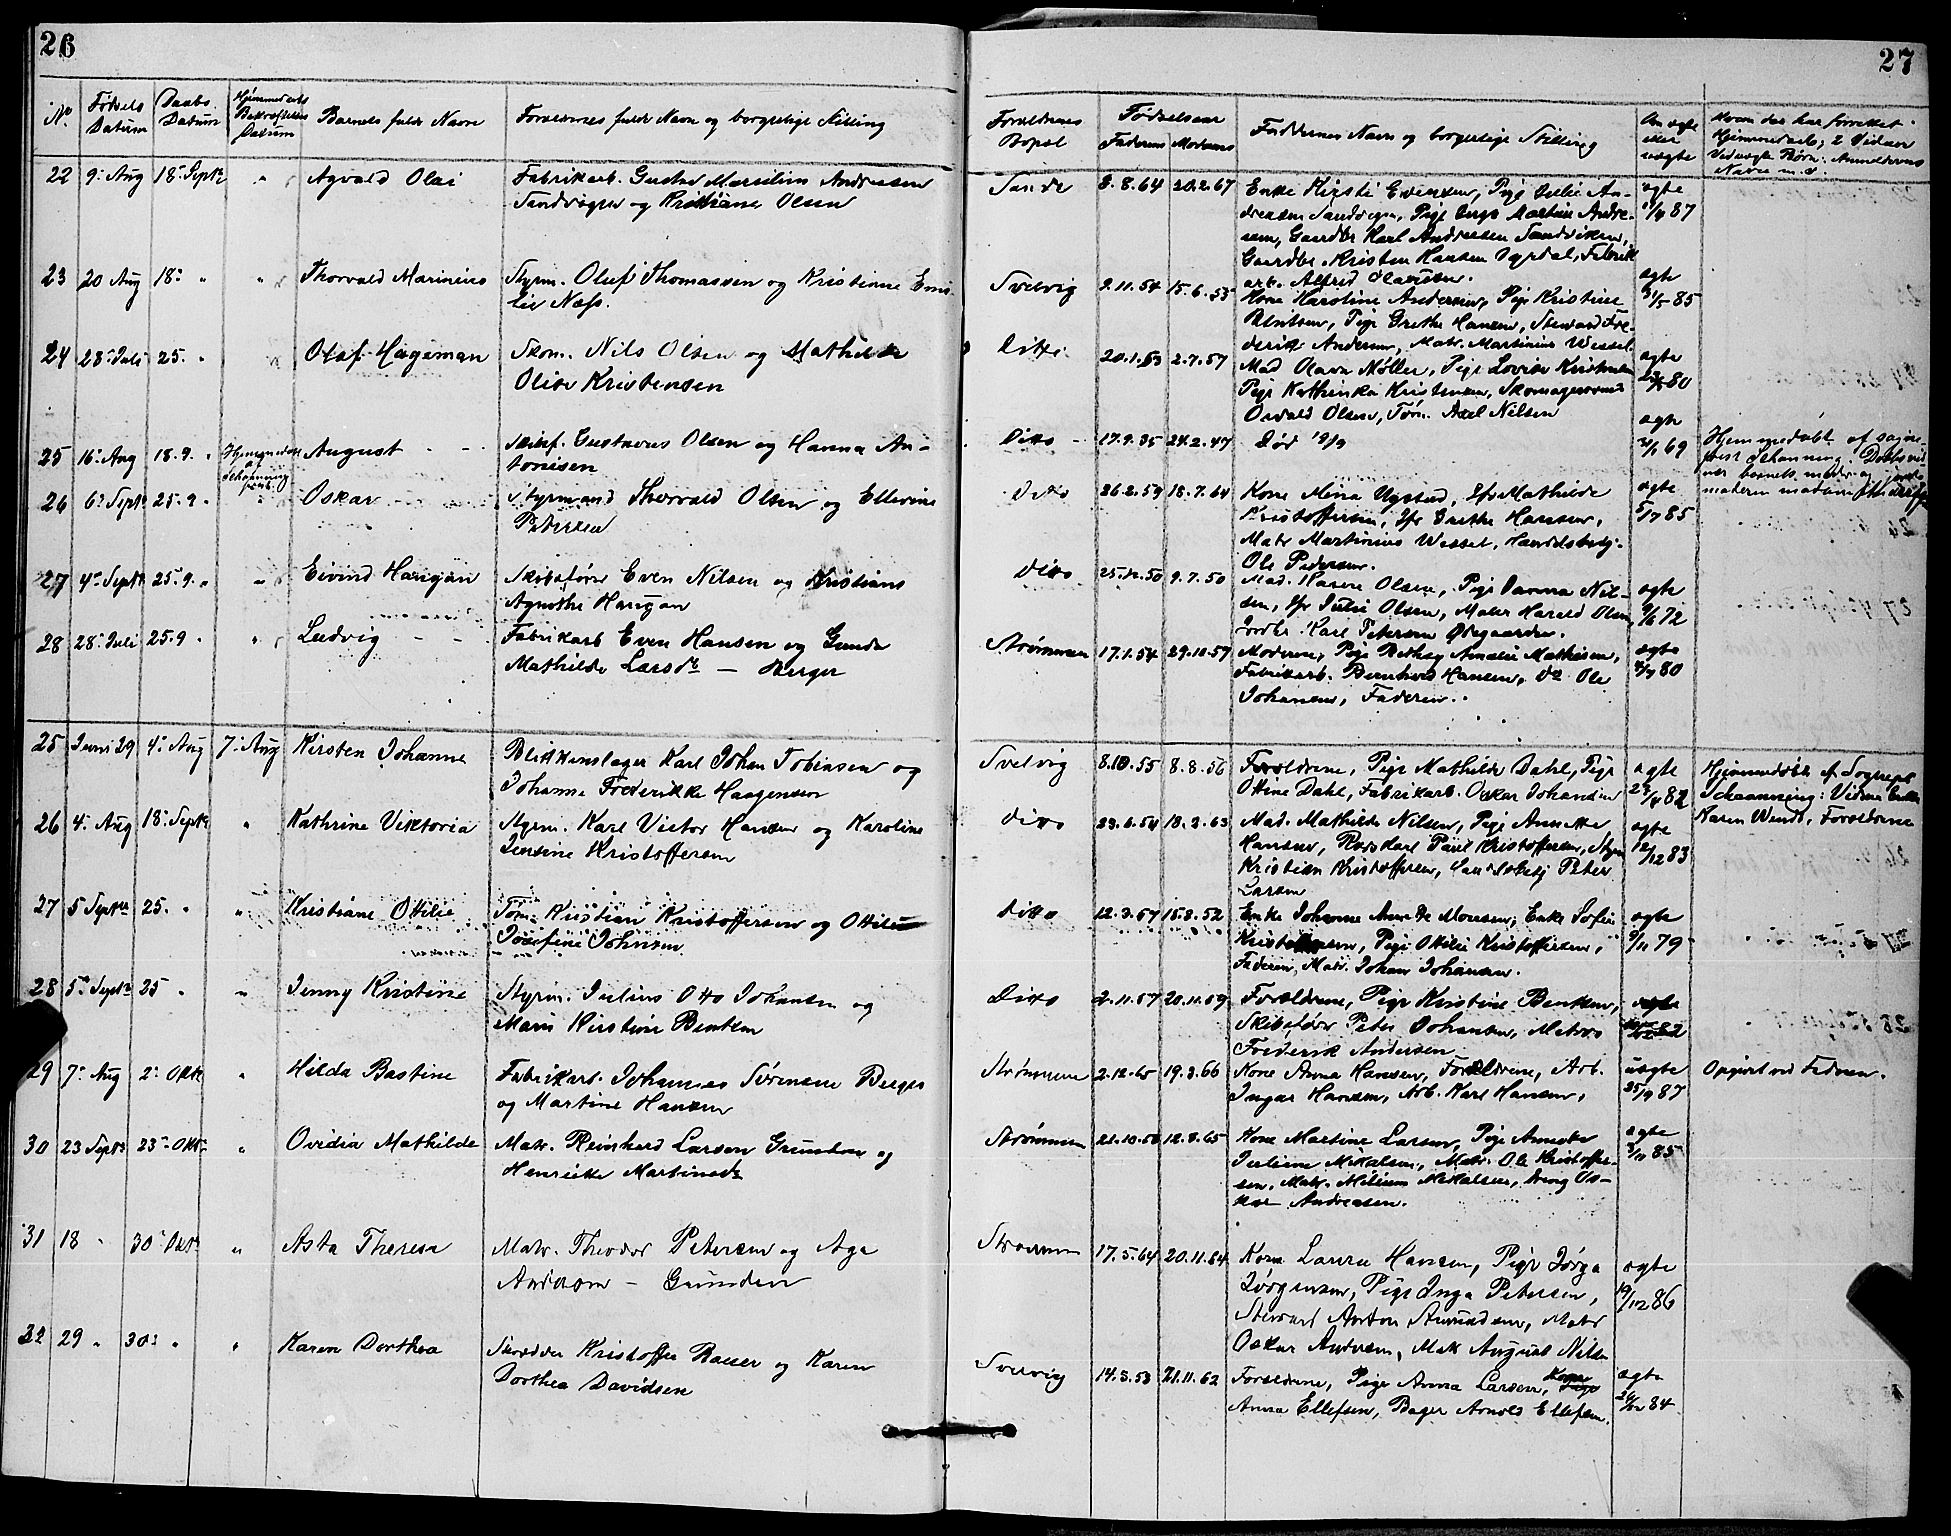 26
No.
Fødsels Datum
Daabs Datum
Hjemmedaabs Bekræftelses Datum
Barnets fulde Navn
Forældrenes fulde Navn og borgerlige Stilling
22 9. Aug 18. Septr " Agvald Olai
Fabrikarb. Gustav Marsilius Andreasen
Sandvigen og Kristiane Olsen
23 20 Aug 18. " " Thorvald Marinius
Styrm. Oluf Thomassen og Kristiane Emi-
lie Næss.
24 28. Juli 25. " " Olaf Hageman
Skom. Nils Olsen og Mathilde
Olise Kristensen
25 16. Aug 18.9. Hjemmedøbt af Schanning August - -
Skibsf. Gustavus Olsen og Hanna An-
tonisen
26 6. Septr 25.9. " Oskar
Styrmand Thorvald Olsen og Ellevine
Petersen
27 4. Septr 25.9. " Eivind Harigan
Skibsfører Even Nilsen og Kristiane
Agnethe Harigan
28 28. Juli 25.9 " Ludvig - -
Fabrikarb Even Hansen og Gunda
Mathilde Larsdr - Berger
25 Juni 29 4. Aug 7. Aug Kirsten Johanne
Blikkenslager Karl Johan Tobiasen og
Johanne Frederikke Haagensen
26 4. Aug 18. Septr " Kathrine Viktoria
Styrm. Karl Victor Hansen og Karoline
Jensine Kristoffersen
27 5 Septr 25. " " Kristiane Ottilie
Tøm. Kristian Kristoffersen og Ottilie
Josefine Johnsen
28 5. Septr 25 " " Jenny Kristine
Styrm. Julius Otto Johansen og
Maria Kirstine Bentsen
29 7. Aug 2. Okt " Hilda Bastine
Fabrikarb. Johannes Sørensen Berger
og Martine Hansen
30 23 Septr 23. Okt. " Ovidia Mathilde
Matr. Reinhard Larsen Grunden og
Henriette Martinsdr
31 18 " 30. Okt. " Asta Theresa
Matr. Theodor Petersen og Aga
Andersen - Grunden
32 29 " 30. " " Karen Dorthea
Skrædder Kristoffer Baller og Karen
Dorthea Davidsen
27
Forældrenes Bopæl
Fødselsaar
Faderens Moderens
Faddernes Navn og borgerlige Stilling
Om ægte eller uægte
Hvem der har forrettet
Hjemmedaab; 2 Vidner
Ved uægte Børn: Anmelderens
Navn m.v.
Sande 8.8.64 20.2.67
Enke Kirsti Evensen, Pige Julie An-
dreasen Sandvigen, Pige Inga Martine Andre-
sen, Gaardbr Karl Andresen Sandviken,
Gaardbr. Kristen Hansen Dyrdal, Fabrik
arb. Alfred Clausen.
ægte 87
Svelvig 9.11.54 15.6.55
Kone Karoline Andersen, Pige Kristine
Bentsen, Pige Grethe Hansen, Steward Fre-
derik Andersen, Matr. Martinius Wessel.
ægte 31/5 85
Ditto 20.1.53 2.7.57
Mad Olava Møller, Pige Lovise Kristensen
Pige Kathinka Kristensen, Skomagersvend
Osvald Olsen, Tøm. Axel Nilsen
ægte 80
Ditto - 17.9.35 24.2.47 Død 19/9
ægte 69
Hjemmedøbt af sogne-
præst Schanning. Daabsvid-
ner barnets moder og Jorde-
moderen madam
Ditto 26.2.59 18.7.64
Kone Mina Nygstad, Jfr Mathilde
Kristoffersen, Jfr Grethe Hansen,
Matr Martinius Wessel, Handelsbetj.
Ole Pedersen.
ægte 85
Ditto 25.12.50 9.7.50
Mad. Karen Olsen, Pige Danna Nil-
sen, Jfr Julie Olsen, Maler Harald Olsen,
Jordbr. Karl Petersen Ødegaarden.
ægte 72
Strømmen 17.1.54 29.10.57
Moderen, Pige Bethsy Amalie Mathisen,
Fabrikarb. Bernhard Hansen, Do Ole
Johansen, Faderen.
ægte 80
Svelvig 8.10.55 8.8.56
Forældrene, Pige Mathilde Dahl, Pige
Ottine Dahl, Fabrikarb. Oskar Johansen
ægte 82
Hjemmedøbt af Sognepr
Schanning: Vidner Enke
Karen Wendt, Forældrene
Ditto 23.6.54 18.2.63
Mad. Mathilde Nilsen, Pige Annette
Hansen, Karl Paul Kristoffersen, Styrm
Kristian Kristoffersen, Handelsbetj Peter
Larsen
ægte 12/12 83
Ditto 12.3.57 15.8.52
Enke Johanne Annette Monsen, Enke Sofie
Kristoffersen, Pige Ottilie Kristoffersen,
Faderen, Matr. Johan Johansen.
ægte 9/11 79
Ditto 2.11.57 20.11.59
Forældrene, Pige Kirstine Bentsen,
Skibsfører Peter Johansen, Matros
Frederik Andersen
ægte 82
Strømmen 2.12.65 19.3.66
Kone Anna Hansen, Forældrene, Arb.
Ingar Hansen, Arb. Karl Hansen,
uægte 25/9 87
Opgivet ved Faderen.
Strømmen 21.10.58 12.8.65
Kone Martine Larsen, Pige Annette
Juliane Mikalsen, Matr. Ole Kristoffer-
sen, Matr. Milius Mikalsen, Dreng Os-
kar Andreasen.
ægte 85
Strømmen 17.5.64 20.11.64
Kone Laura Hansen, Pige Jørga
Jørgensen, Pige Inga Petersen,
Steward Anton Amundsen, Matr
Oskar Andersen, Matr August Nilsen
ægte 19/12 86
Svelvig 14.3.53 21.11.62
Forældrene, Pige Anna Larsen, Kone
Anna Ellefsen, Bager Arnold Ellefsen.
ægte 84